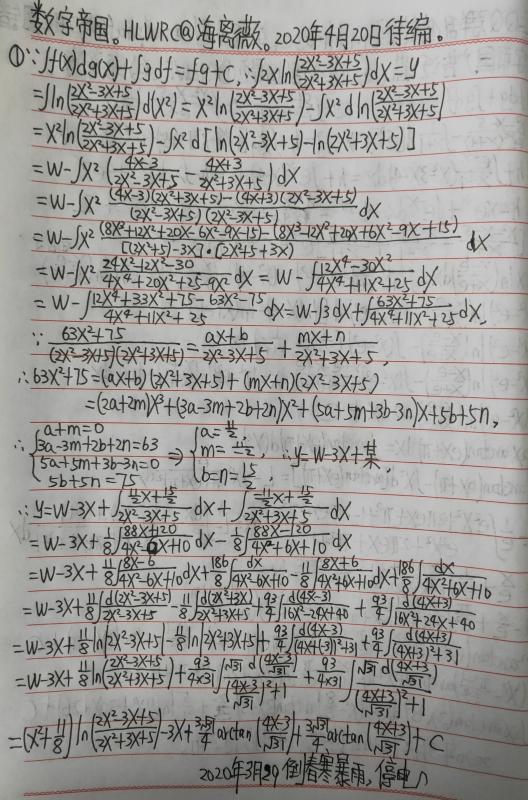 数字帝国。HLWRC@海离薇。2020年4月20日待编。
①∵∫f(x)dg(x)+∫gdf=fg+C,∴∫2xln((2X²-3X+5)/(2X²+3X+5))dX=y
=∫ln((2X²-3X+5)/(2X²+3X+5))d(X²)=X²ln((2X²-3X+5)/(2X²+3X+5))-∫X²dln((2X²-3X+5)/(2X²+3X+5))
=X²ln((2X²-3X+5)/(2X²+3X+5))-∫X²d[ln(2X²-3X+5)-ln(2X²+3X+5)]
=W-∫X²((4X-3)/(2X²-3X+5)-(4X+3)/(2X²+3X+5))dX
=W-∫X²((4X-3)(2X²+3X+5)-(4X+3)(2X²-3X+5))/((2X²-3X+5)(2X²-3X+5))dX
=W-∫X²((8X³+12X²+20X-6X²-9X-15)-(8X³-12X²+20X+6X²-9X+15))/([(2X²+5)-3X]·[2X²+5+3X))dX
=W-∫X²(24X²-12X²-30)/(4X⁴+20X²+25-9X²)dX=W-∫(12X⁴-30X²)/(4X⁴+11X²+25)dX
=W-∫(12X⁴+33X²+75-63X²-75)/(4X⁴+11X²+25)dX=W-∫3dX+∫(63X²+75)/(4X⁴+11X²+25)dX,
∵(63X²+75)/((2X²-3X+5)(2X²+3X+5))=(ax+b)/(2X²-3X+5)+(mx+n)/(2X²+3X+5),
∴63X²+75=(ax+b)(2X²+3X+5)+(mx+n)(2X²-3X+5)
=(2a+2m)X³+(3a-3m+2b+2n)X²+(5a+5m+3b-3n)X+5b+5n,
∴{a+m=0
3a-3m+2b+2n=63
5a+5m+3b-3n=0
5b+5n=75
⇒{a=11/2,
m=-11/2,
b=n=15/2,
∴y=W-3X+某,
∴y=W-3X+∫(11/2X+15/2)/(2X²-3X+5)dX+∫(-11/2X+15/2)/(2X²+3X+5)dX
=W-3X+1/8∫(88X+120)/(4X²-6X+10)dX-1/8∫(88X-120)/(4X²+6X+10)dX
=W-3X+11/8∫(8X-6)/(4X²-6X+10)dX+186/8∫dX/(4X²-6X+10)-11/8∫(8X+6)/(4X²+6X+10)dX+186/8∫dX/(4X²+6X+10)
=W-3X+11/8∫d(2X²-3X)/(2X²-3X+5)-11/8∫d(2X²+3X)/(2X²+3X+5)+93/4∫d(4X-3)/(16X²-24X+40)+93/4∫d(4X+3)/(16X²+24X+40)
=W-3X+11/8ln|2X²-3X+5|-11/8ln|2X²+3X+5|+93/4∫d(4X-3)/((4X-3)²+31)+93/4∫d(4X+3)/((4X+3)²+31)
=W-3X+11/8ln((2X²-3X+5)/(2X²+3X+5))+93/(4×31)∫√31d((4X-3)/√31)/(((4X-3)/√31)²+1)+93/(4×31)∫√31d((4X+3)/√31)/(((4X+3)/√31)²+1)
=(X²+11/8)ln((2X²-3X+5)/(2X²+3X+5))-3X+3√31/4arctan((4X-3)/√31)+3√31/4arctan((4X+3)/√31)+C
2020年3月29倒春寒暴雨,停电♪